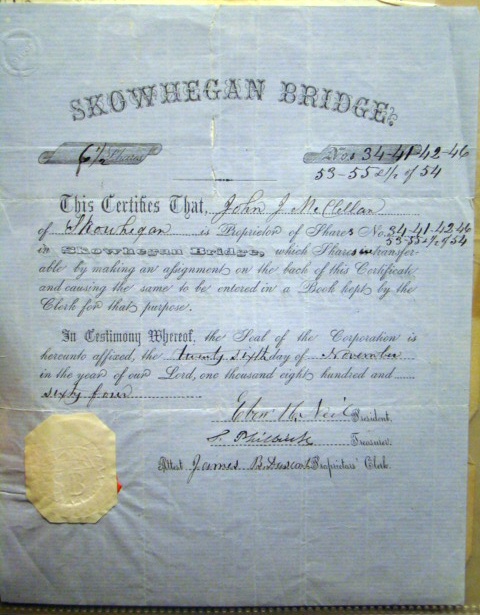 SKOWHEGAN BRIDGE.
6 1/2 Shares
Nos 34-41-42-46
53-55 & 1/2 of 54
This Certifies That, John J McClellan
of Skowhegan is Proprietor of Shares No. 34-41-42-46
53-55 & 1/2 of 54
in Skowhegan Bridge, which Shares is transfer-
able by making an assignment on the back of this Certificate
and causing the same to be entered in a Book kept by the
Clerk for that purpose.
In Testimony Whereof, the Seal of the Corporation is
hereunto affixed, the twenty sixth day of November
in the year of our Lord, one thousand eight hundred and
sixty four
President,
S. Philbrick Treasurer.
Attest James B. Dascomb Proprietors' Clerk.